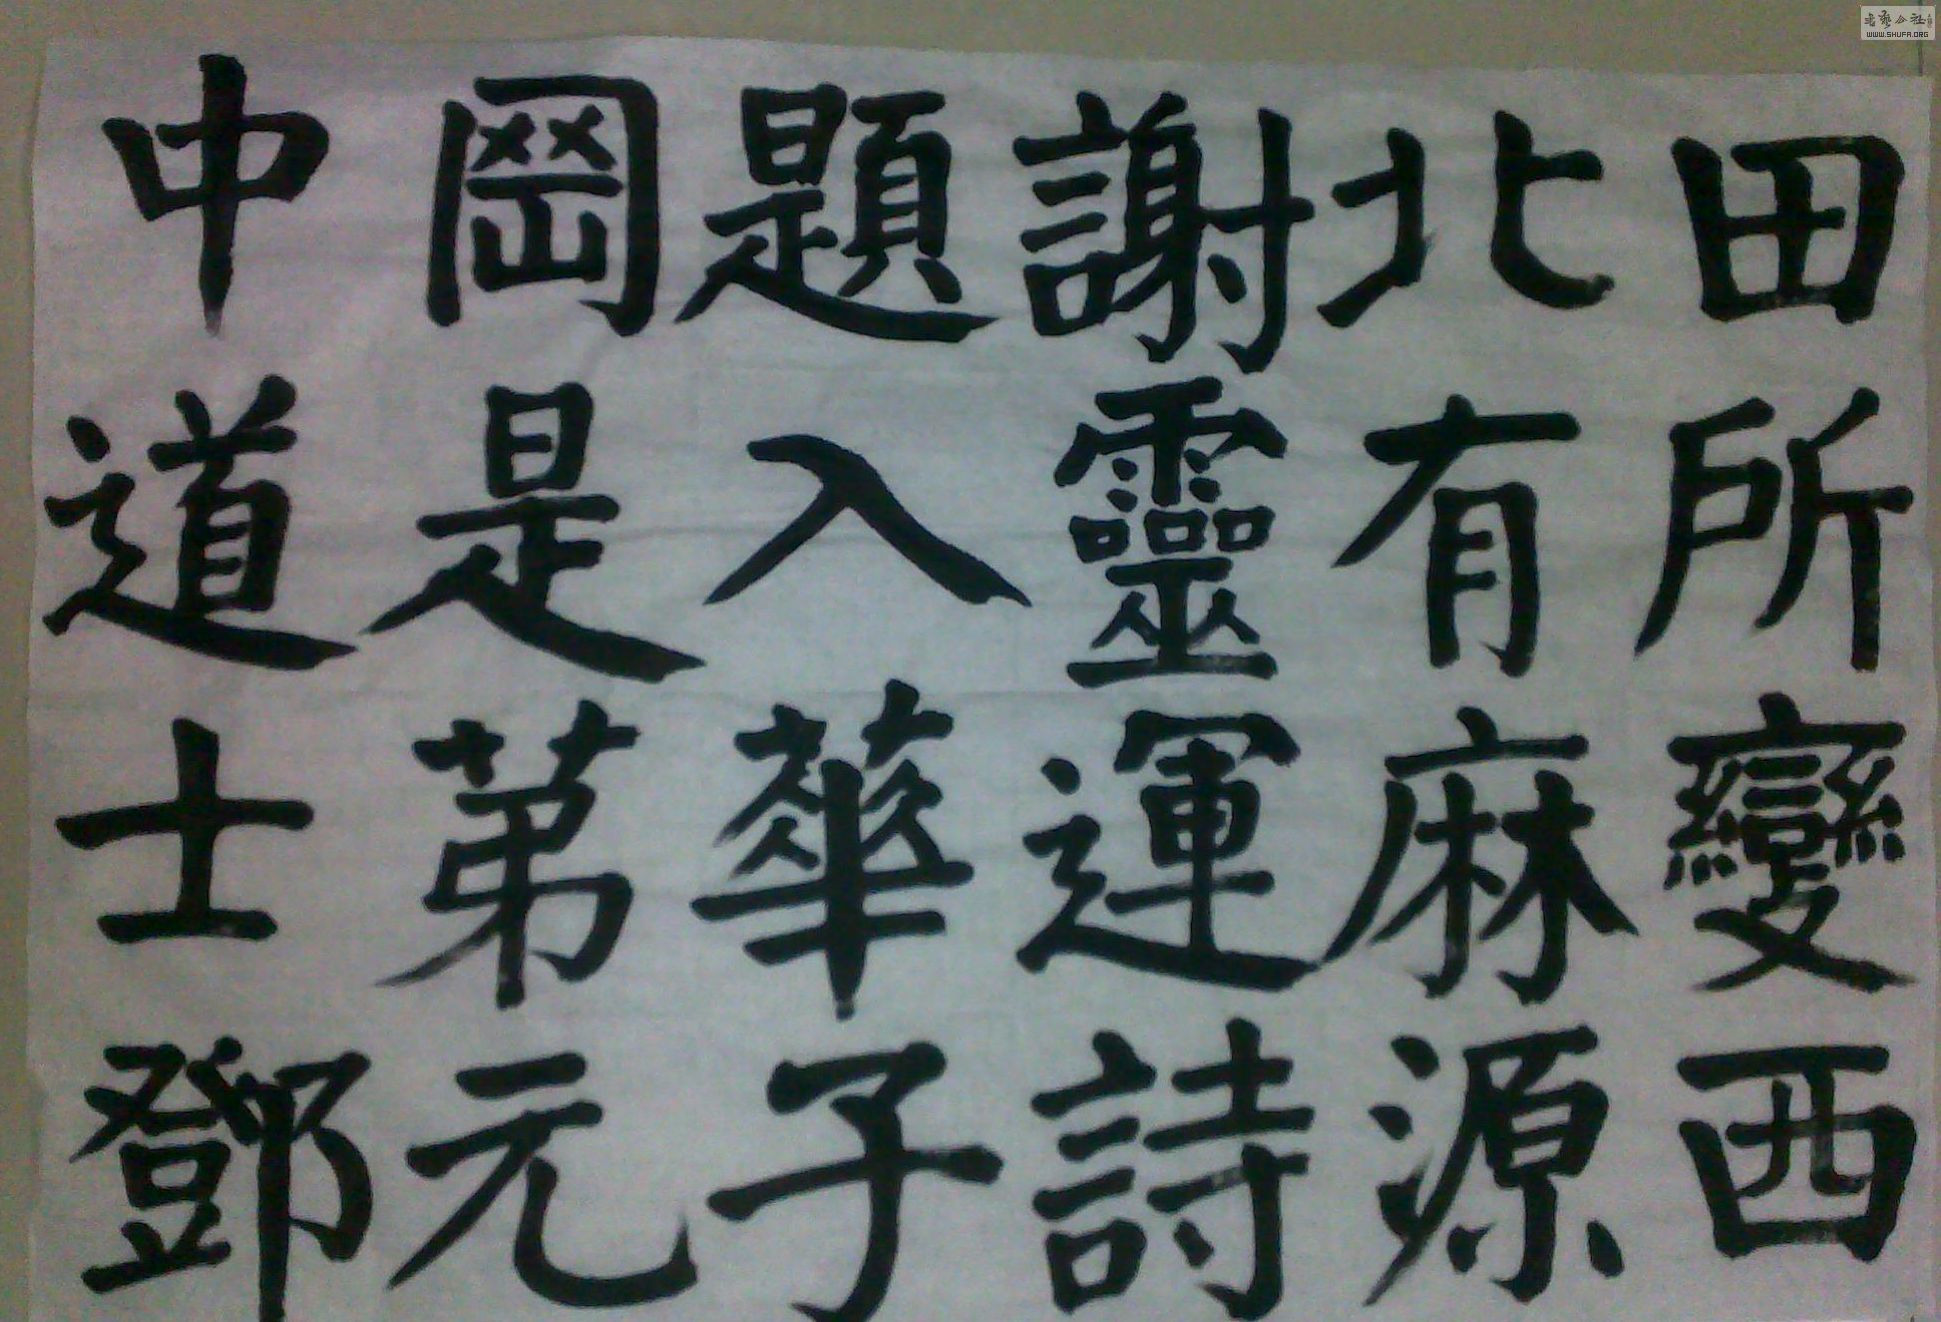 田所變西
北有麻源
謝靈運詩
題入華子
岡是苐元
中道士鄧
WWW.SHUFA.ORG